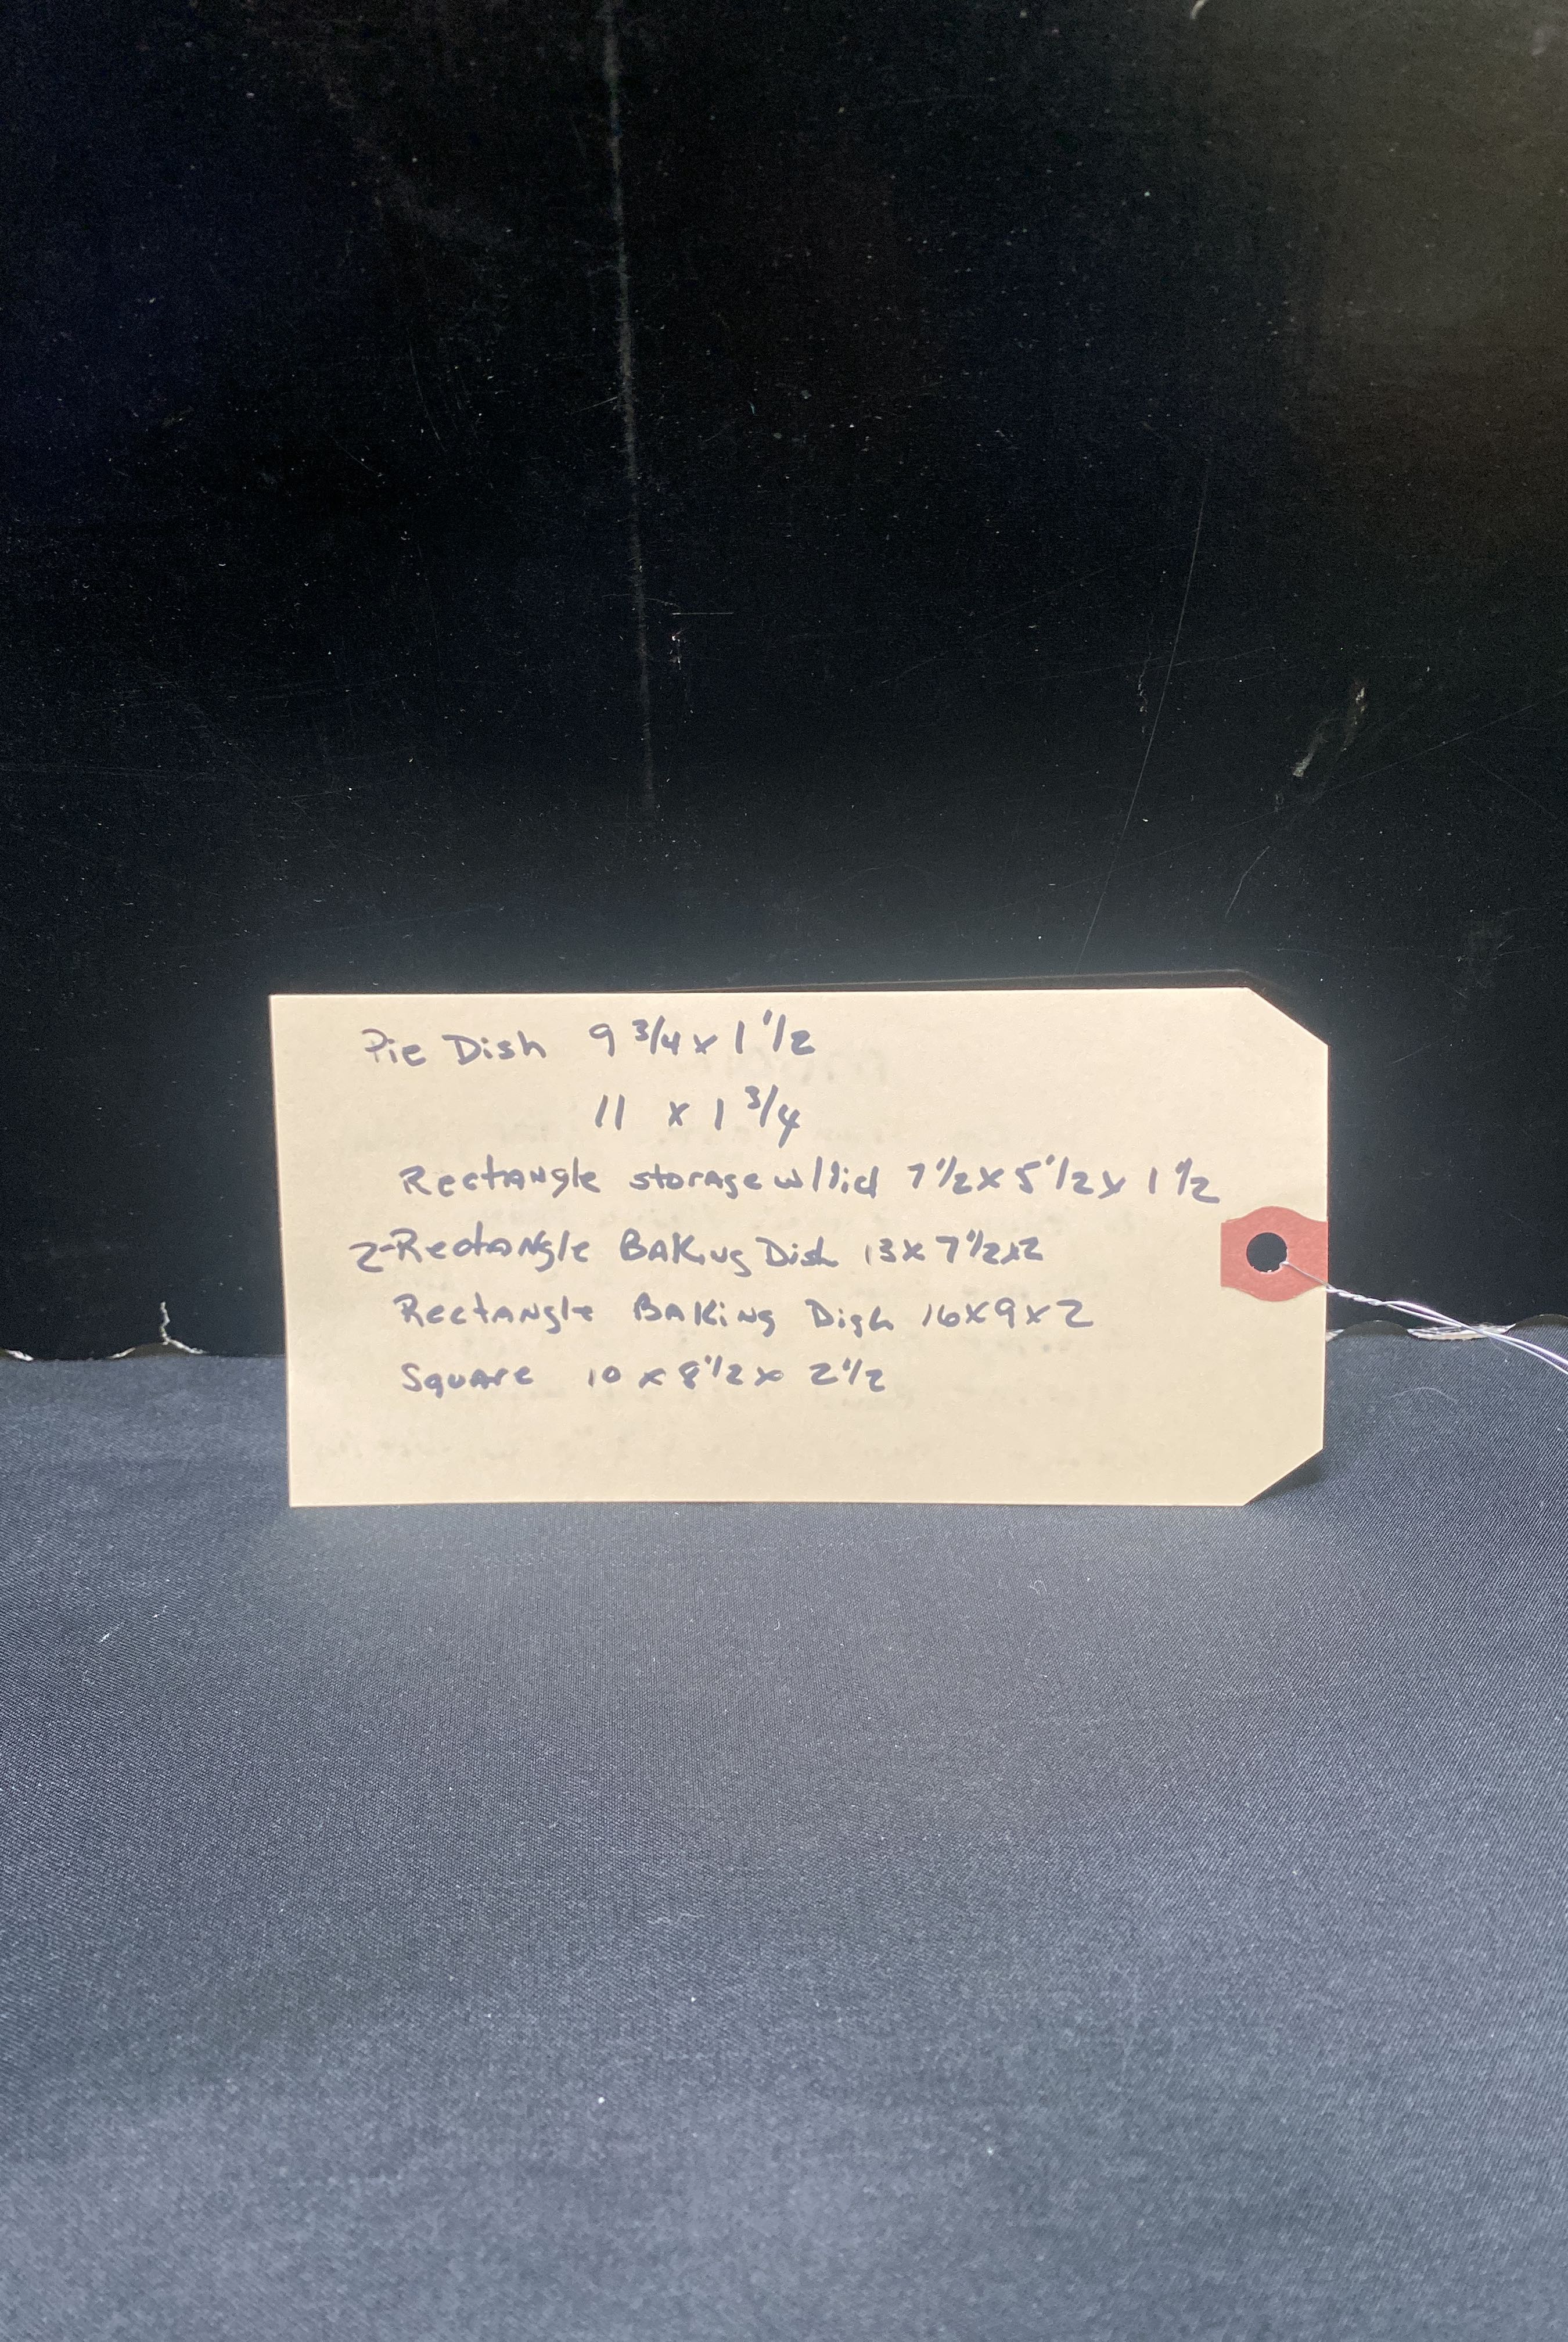 Pie Dish 9 3/4 x 1 1/2
11 x 1 3/4
Rectangle storage w/lid 7 1/2 x 5 1/2 x 1 1/2
2-Rectangle BAKing Dish 13 x 7 1/2 x 2
Rectangle BAKiNg Dish 16 x 9 x 2
Square 10 x 8 1/2 x 2 1/2